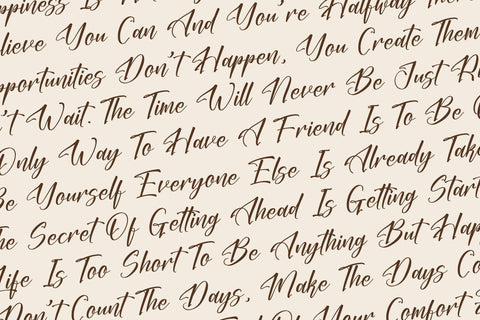 Is
lieve You Can And You're Halfway There
pportunities Don't Happen, You Create Them
't Wait. The Time Will Never Be Just Ri
Only Way To Have A Friend Is To Be
Be Yourself Everyone Else Is Already Take
he Secret Of Getting Ahead Is Getting Start
Life Is Too Short To Be Anything But Hap
Don't Count The Days, Make The Days Co
Of Your Comfort